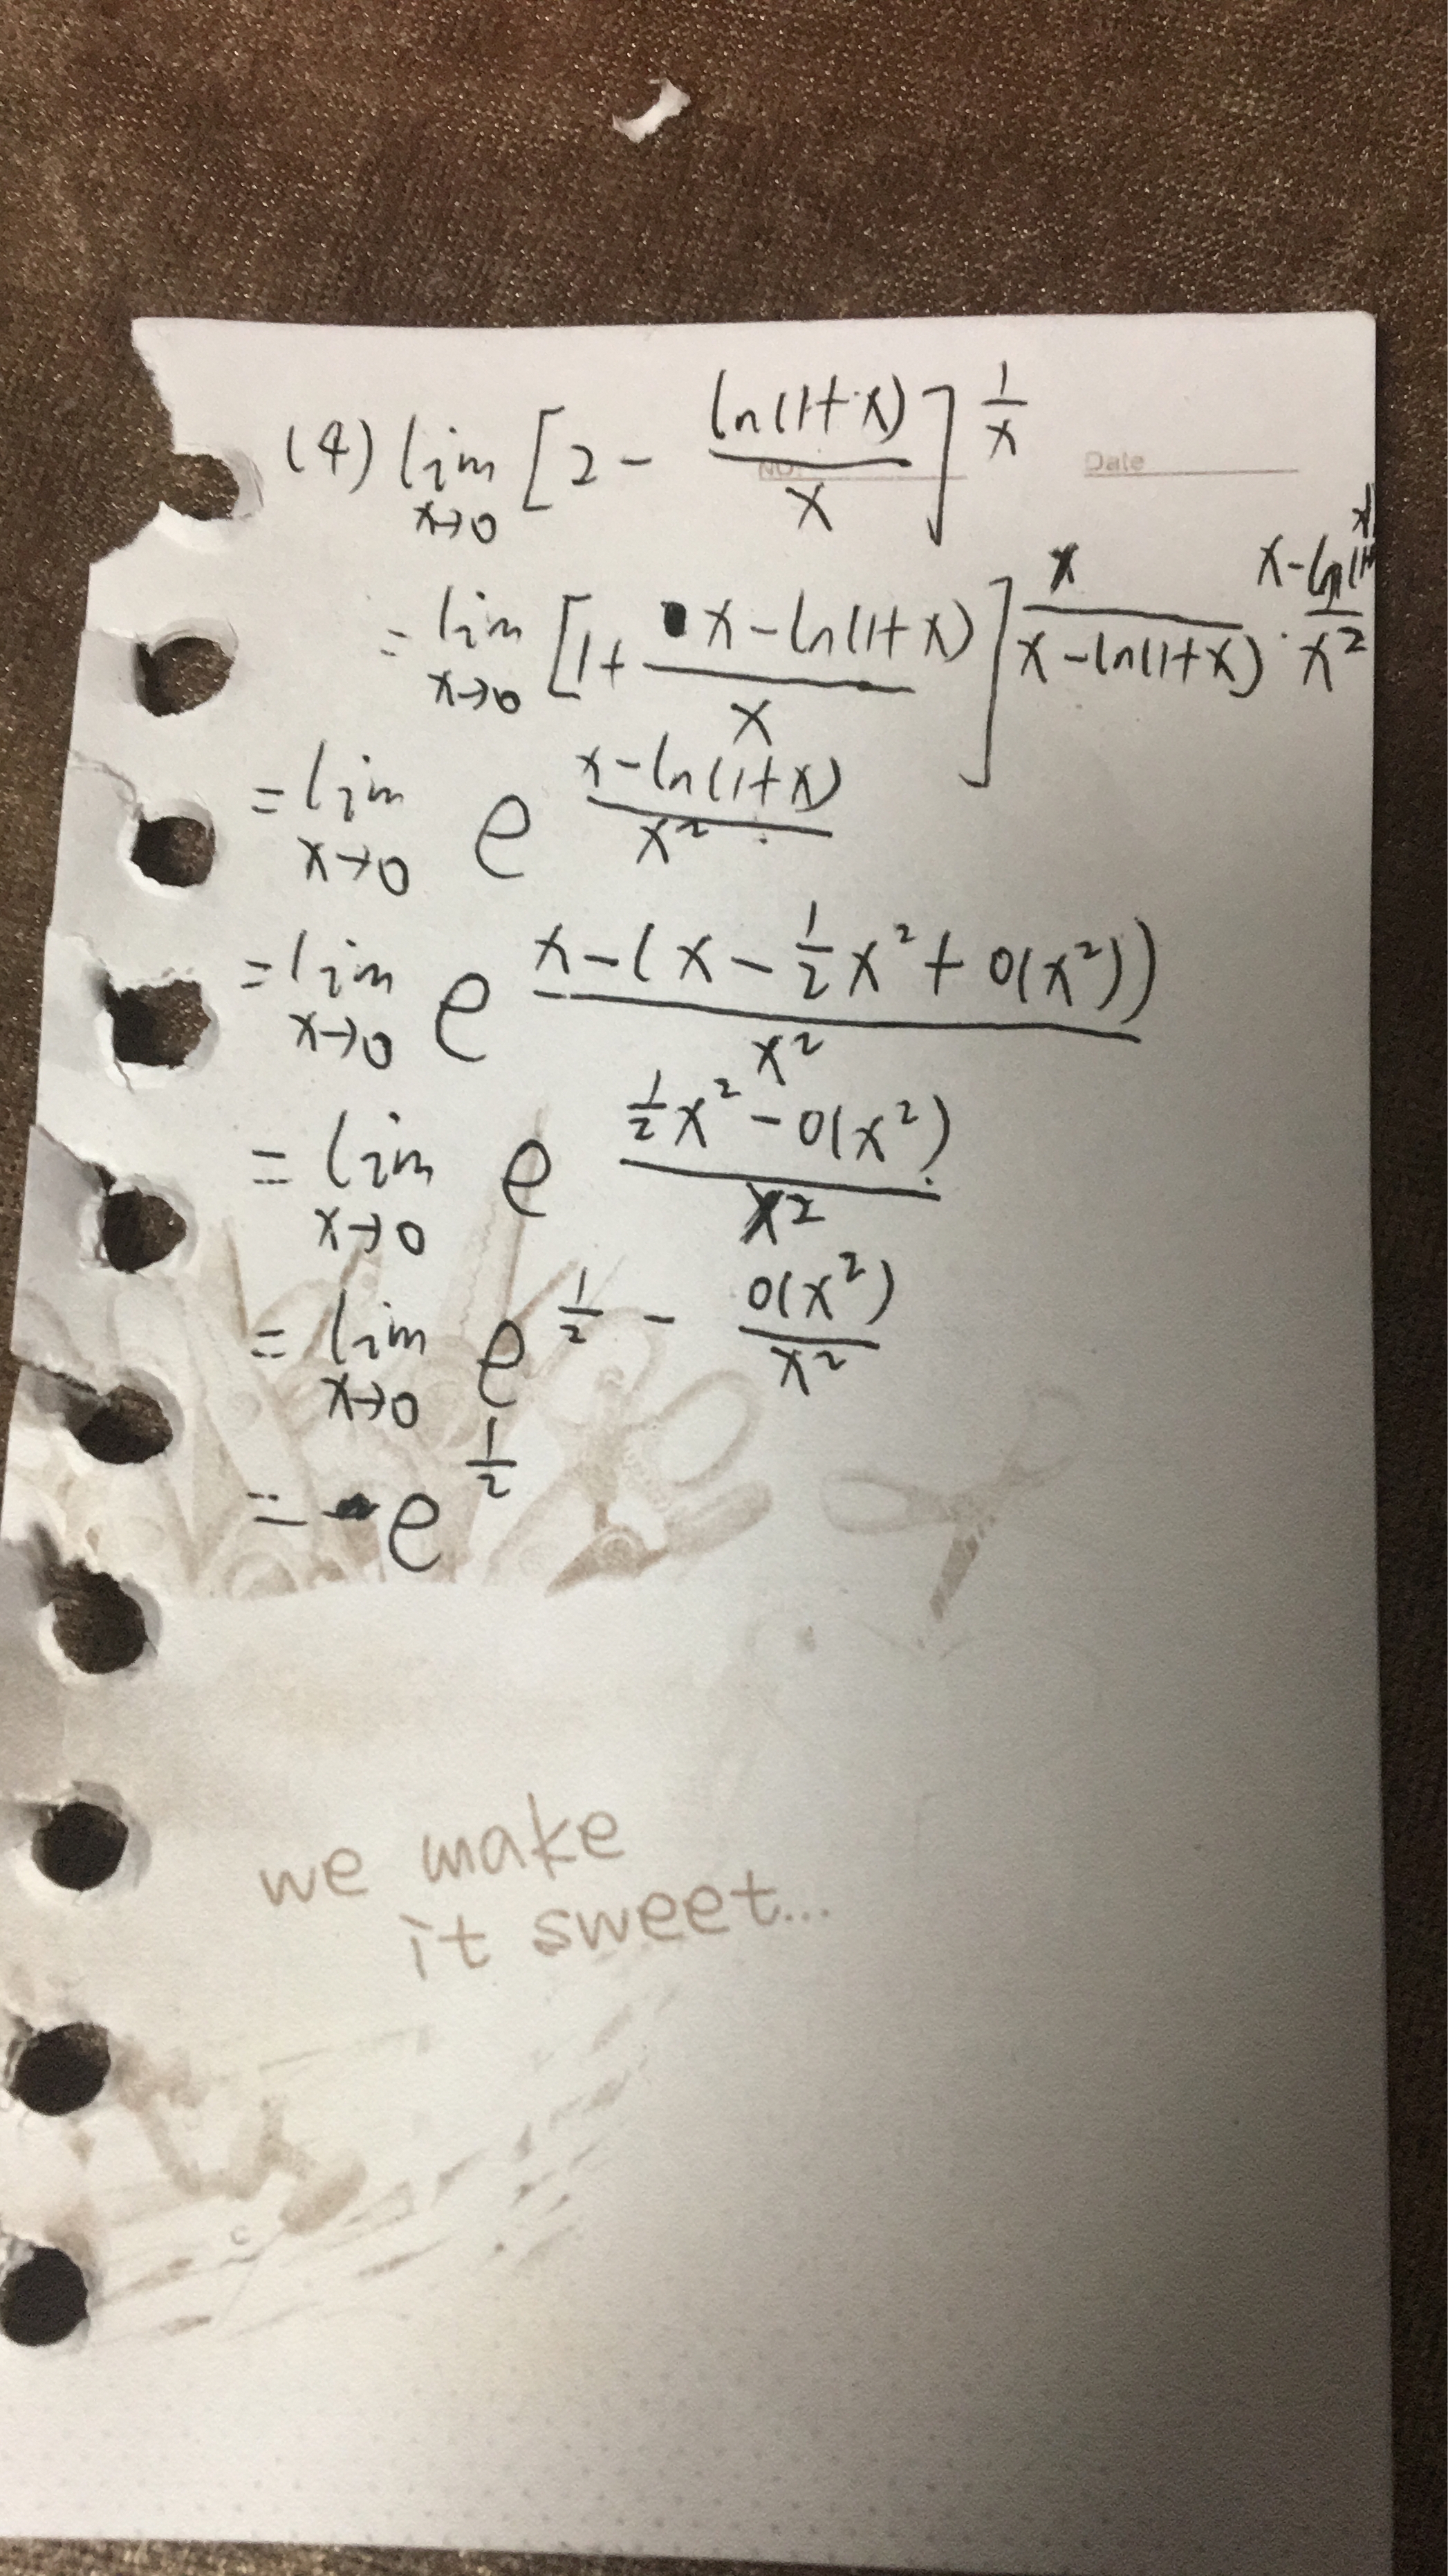 (4) lim x→0 [2 - ln(1+x)/x]^(1/x)
NO. Date
= lim x→0 [1 + (x-ln(1+x))/x]^(x/(x-ln(1+x)) · (x-ln(1+x))/x²)
= lim x→0 e^((x-ln(1+x))/x²)
= lim x→0 e^((x-(x-½x²+o(x²)))/x²)
= lim x→0 e^((½x²-o(x²))/x²)
= lim x→0 e^(½ - o(x²)/x²)
= e^½
we make
it sweet...